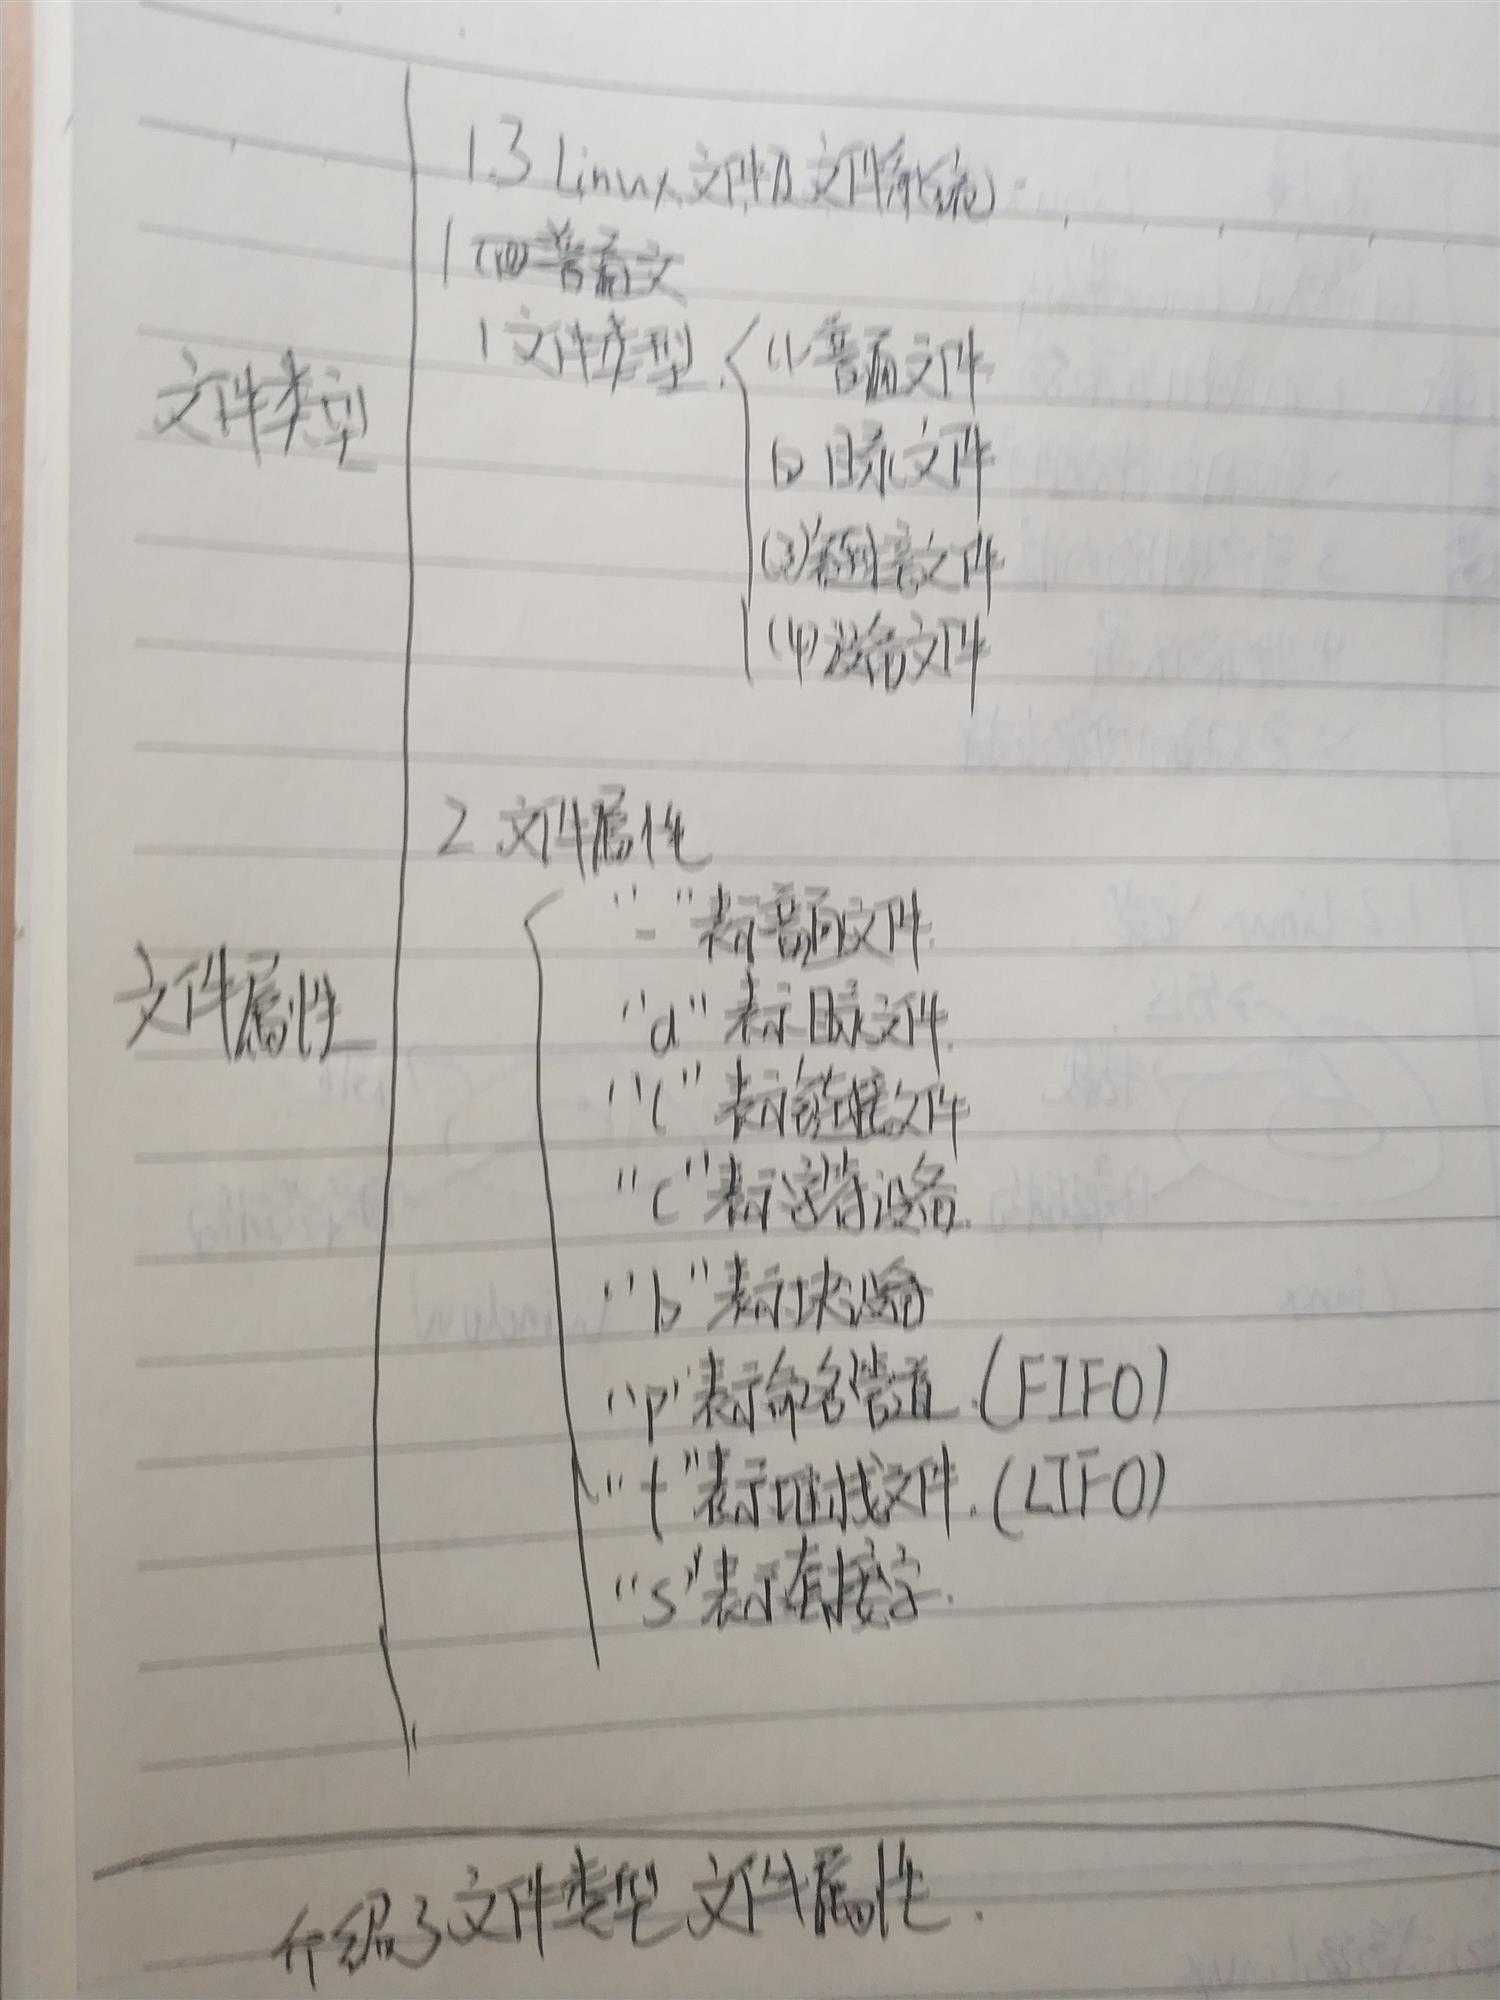 1.3 Linux文件及文件系统
1
1 文件类型
(1) 普通文件
文件类型
(2) 目录文件
(3) 链接文件
(4) 设备文件
2 文件属性
"-"表示普通文件.
文件属性
"d"表示目录文件.
"l"表示链接文件
"c"表示字符设备.
"b"表示块设备
"p"表示命名管道.(FIFO)
"f"表示堆栈文件.(LIFO)
"s"表示套接字.
介绍了文件类型 文件属性.